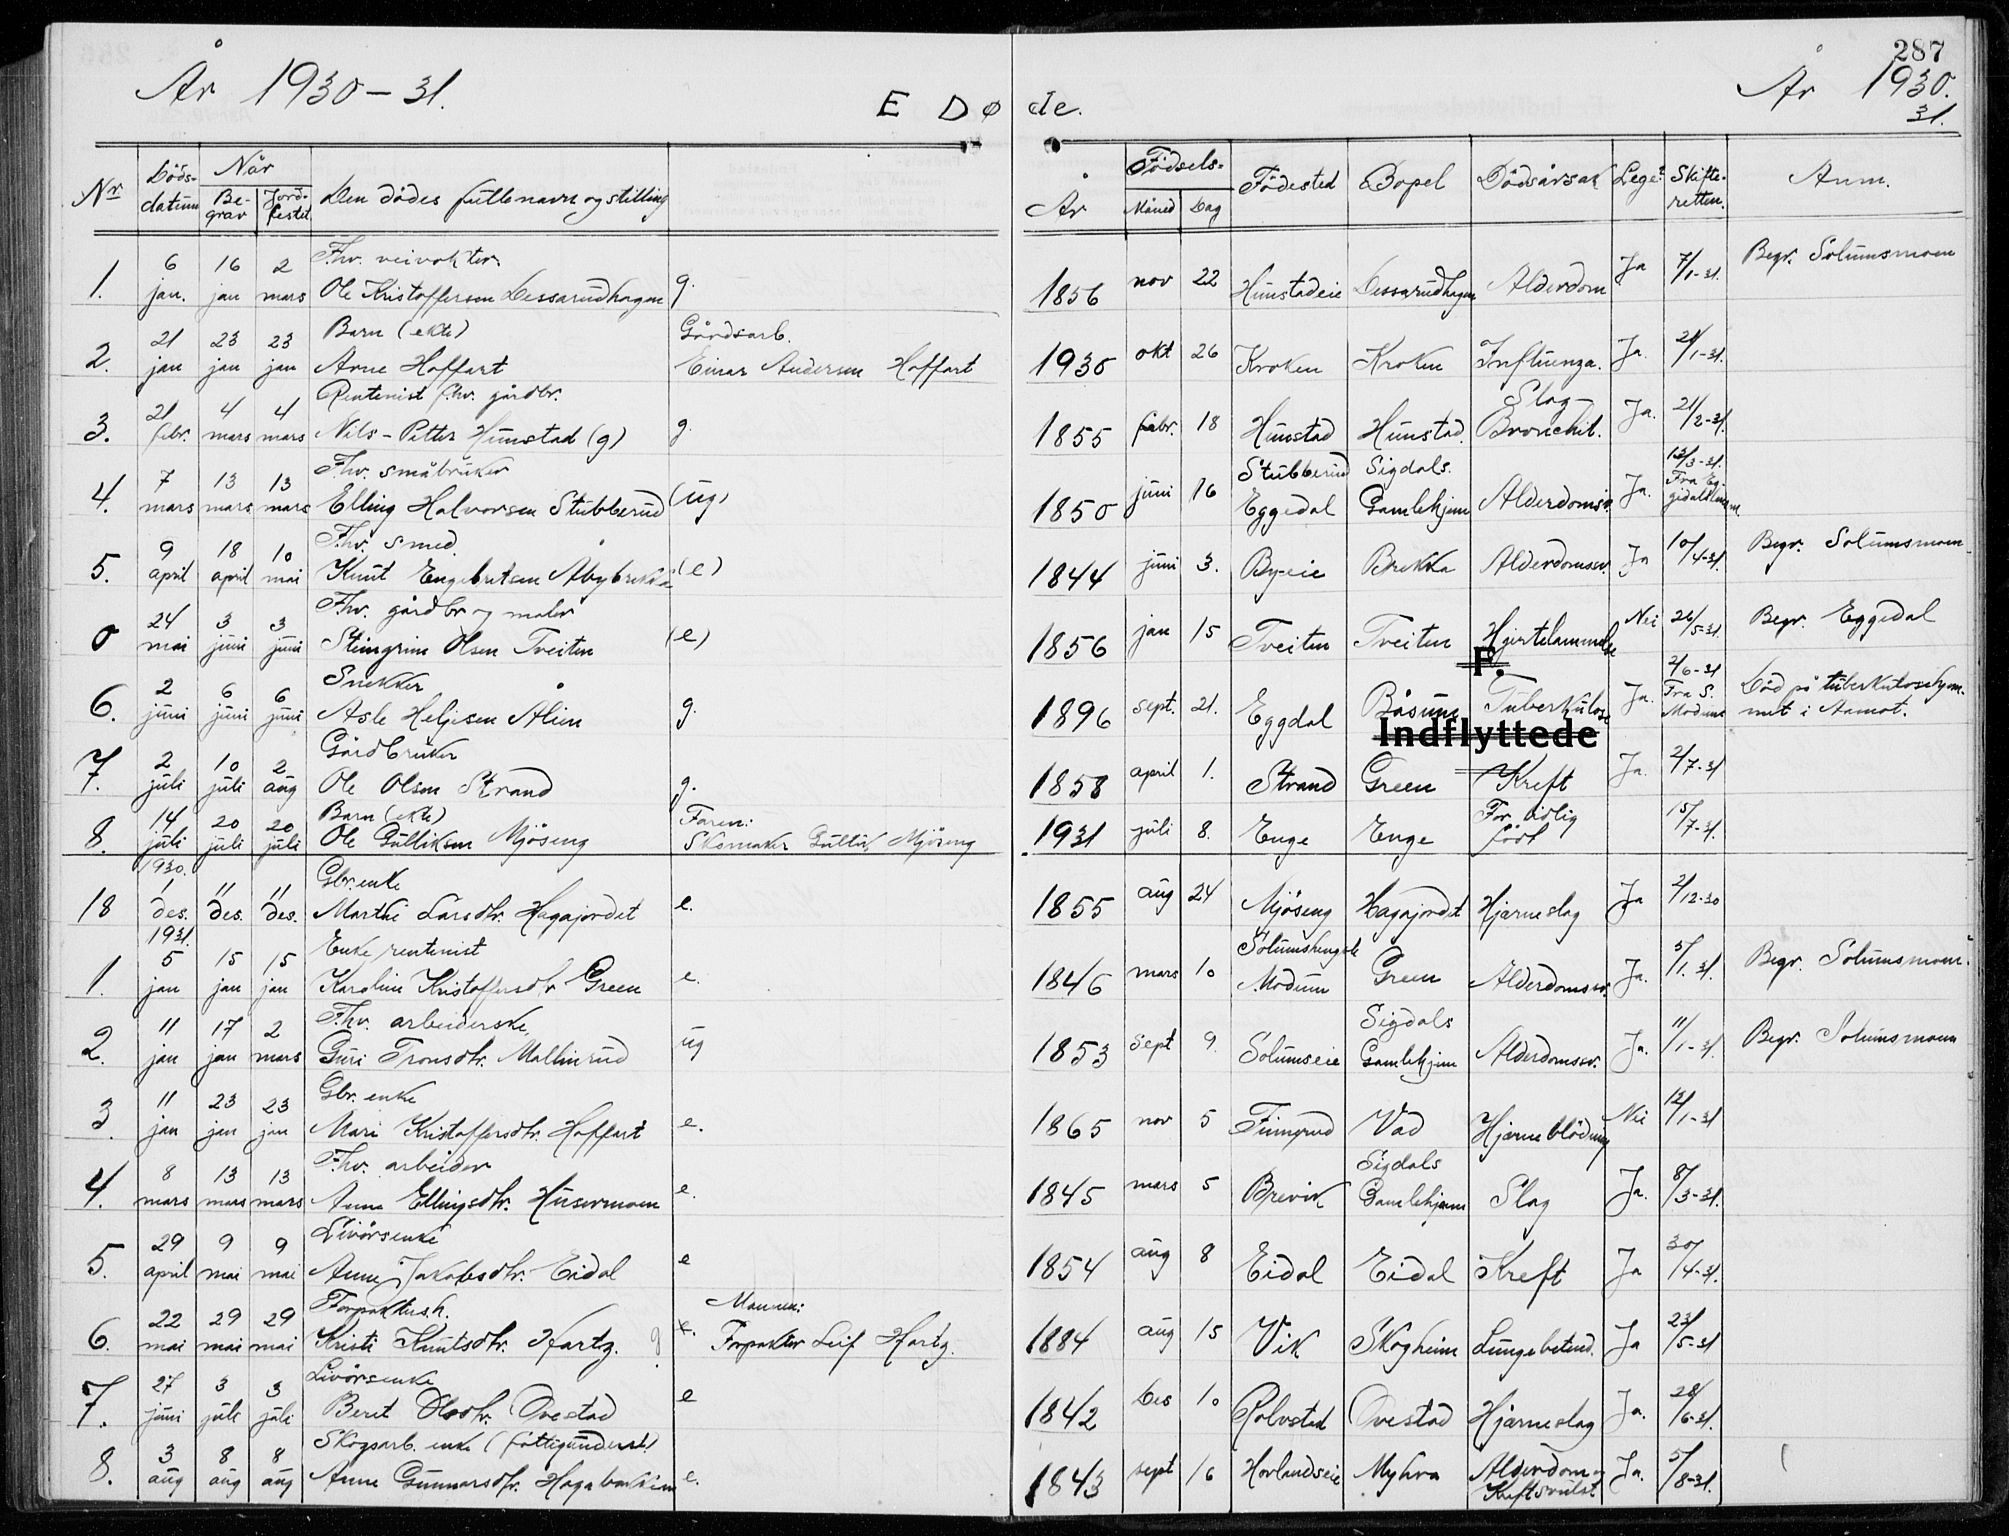 År 1930-31.
E Døde.
287
År 1930.
31.
Nr Döds-datum Når Be-grav Jord-festet Den dödes fulle navn og stilling År Födsels- Måned Dag Födested Bopel Dödsårsak Lege? Skifte-retten. Anm.
Fhv. veivokter.
1. 6 jan. 16 jan 2 mars Ole Kristoffersen Dessarudhagen g. 1856 nov 22 Hunstadeie Dessarudhagen Alderdom Ja 7/1-31. Begr. Solumsmoen
Barn (ekte) Gårdsarb.
2. 21 jan 23 jan 23 jan Arne Hoffart Einar Andersen Hoffart 1930 okt 26 Kroken Kroken Influenza. Ja. 21/1-31.
Rentenist fhv. gårdbr. Slag-
3. 21 febr. 4 mars 4 mars Nils-Petter Hunstad (g) g. 1855 febr. 18 Hunstad Hunstad. Bronchit. Ja. 21/2-31.
Fhv. småbruker Stubberud Sigdals. 12/3-31.
4. 7 mars 13 mars 13 mars Elling Halvorsen Stubberud (ug) 1850 juni 16 Eggedal Gamlehjem Alderdomsv. Ja. Fra Eg-
Fhv. smed.
5. 9 april 18 april 10 mai Knut Engebretsen Åbybrekka (e) 1844 juni 3. By-eie Brekka Alderdomssv. Ja 10/4-31. Begr. Solumsmoen
Fhv. gårdbr og maler
0 24 mai 3 juni 3 juni Steingrim Olsen Tveiten (e) 1856 jan 15 Tveiten Tveiten Hjertelammelse Nei 26/5-31. Begr. Eggedal
F.
Snekker 2/6-31
6. 2 juni 6 juni 6 juni Asle Helgesen Ålien g. 1896 sept. 21. Eggdal Båsum Tuberkulose Ja. Fra S. Modum Död på tuberkulosehjem-
met i Aamot.
Indflyttede
Gårdbruker
7. 2 juli 10 juli 2 aug Ole Olsen Strand g. 1858 april 1. Strand Green Kreft Ja. 2/7-31
Barn (ekte) Faren: For tidlig
8. 14 juli 20 juli 20 juli Ole Gulliksen Mjöseng Skomaker Gullik Mjöseng 1931 juli 8. Enge Enge födt 15/7-31.
1930. Gbr.enke
18 1 des. 11 des. 11 des. Marthe Larsdtr. Hagajordet e. 1855 aug 24 Mjöseng Hagajordet Hjerneslag Ja 2/12-30
1931. Enke rentenist
1. 5 jan 15 jan 15 jan Karoline Kristoffersdtr Green e. 1846 mars 10 Modum Green Alderdomssv. Ja. 5/1.31. Begr. Solumsmoen.
Fhv. arbeiderske, Sigdals
2. 11 jan 17 jan 2 mars Guri Tronsdtr. Mallinrud ug 1853 sept 9. Solumseie Gamlehjem Alderdomssv. Ja. 11/1-31. Begr. Solumsmoen
Gbr. enke
3. 11 jan 23 jan 23 jan Mari Kristoffersdtr. Hoffart e. 1865 nov 5 Vad Hjerneblödning Nei 12/1-31
Fhv. arbeider Sigdals
4. 8 mars 13 mars 13 mars Anne Ellingsdtr. Husermoen e. 1845 mars 5 Brevik Gamlehjem Slag Ja. 8/3-31.
Livörsenke
5. 29 april 9 mai 9 mai Anne Jakobsdtr. Eidal e 1854 aug 8 Eidal Eidal Kreft Ja 30/4-31.
Forpakters h. Mannen:
6. 22 mai 29 mai 29 mai Kristi Knutsdtr. Hartz. g e. Forpakter Leif Hartz. 1884 aug 15 Vik Skogheim Lungebetend. Ja 23/5-31
Livörsenke
7. 27 juni 3 juli 3 juli Berit Olsdtr. Ovestad e 1842 Des 10 Rolvstad Ovestad Hjerneslag Ja. 28/6-31.
Skogsarb. enke (fattigunderst.)
8. 3 aug 8 aug 8 aug Anne Gunnarsdtr. Hagabakken e. 1843 sept 16 Horlandseie Myhra Alderdom og Kreftsvulst Ja. 5/8-31.